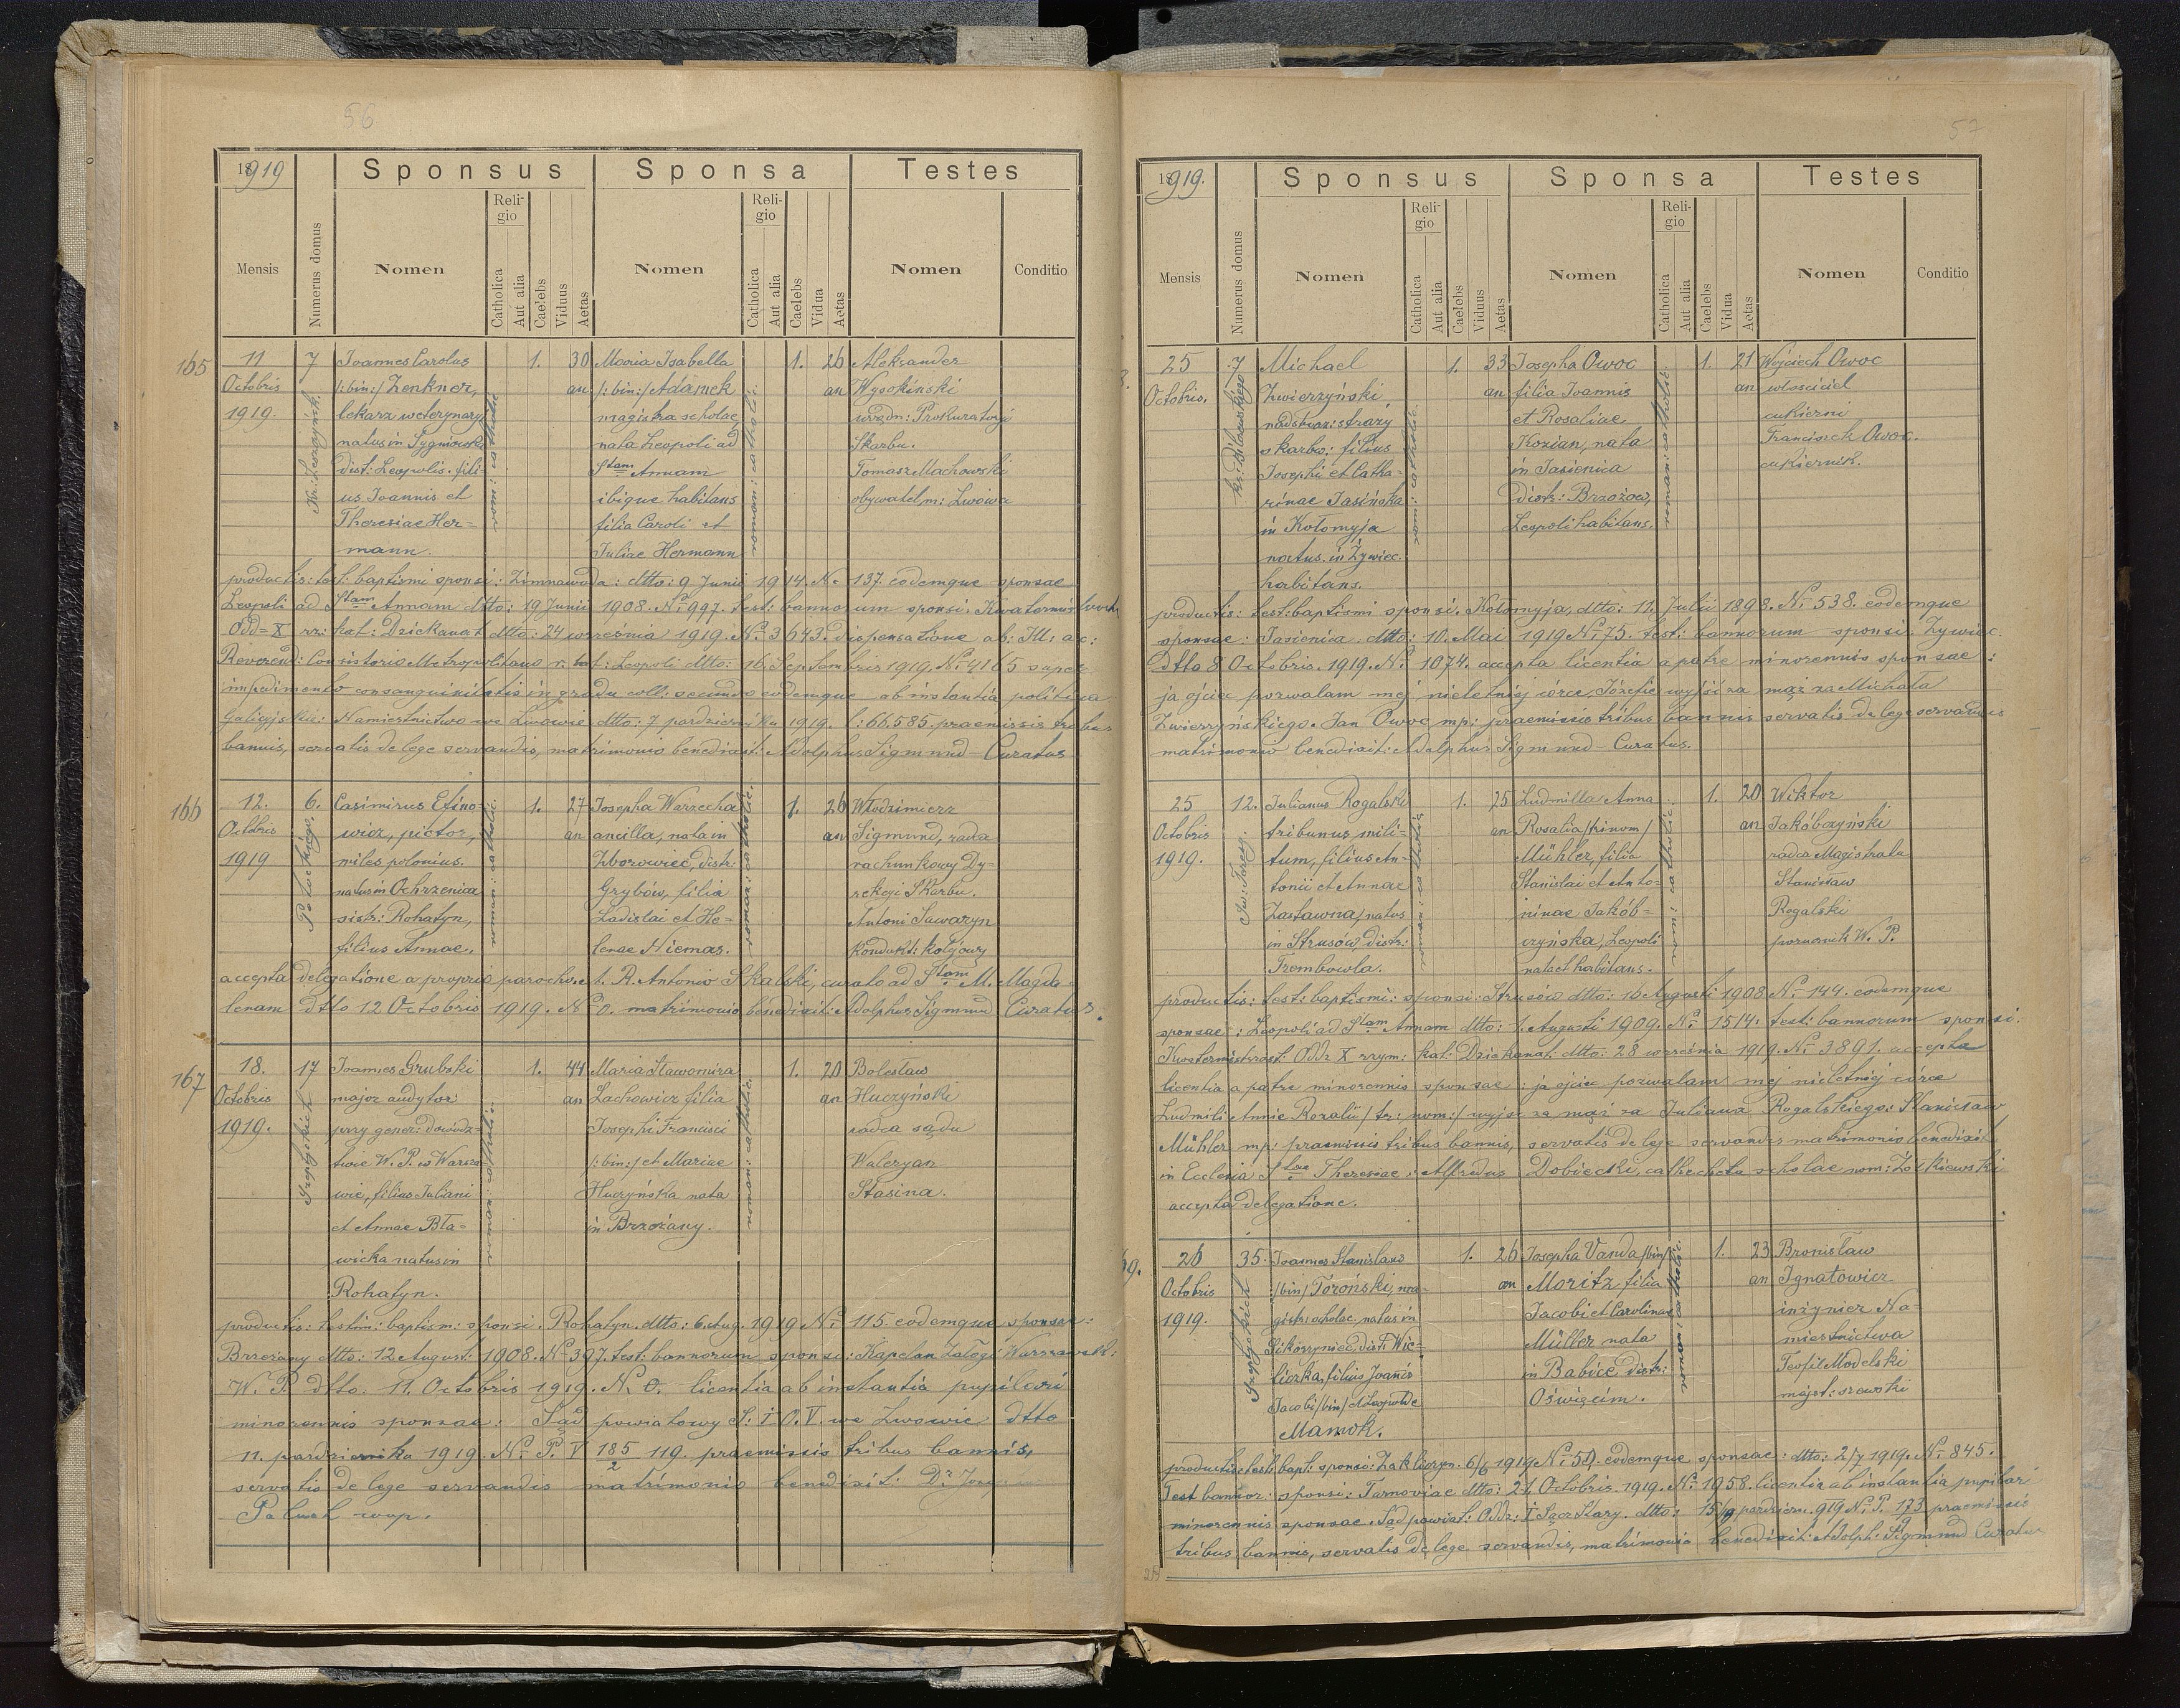 56
1919
Sponsus
Sponsa
Testes
Mensis
Numerus domus
Nomen
Religio
Catholica
Aut alia
Caelebs
Viduus
Aetas
Nomen
Religio
Catholica
Aut alia
Caelebs
Vidua
Aetas
Nomen
Conditio
165
11
Octobris
1919.
7
Joannes Carolus
/:bin:/ Zenkner,
lekarz weterynary
natus in
dist: Leopolis. fili-
us Joannis et
Theresiae Her-
mann.
rom: catholic
1.
30
an
Maria Isabella
/:bin:/ Adamek
magistra scholae,
nata Leopoli ad
Stam Annam
ibique habitans
filia Caroli et
Juliae Hermann
roman: catholic:
1.
26
an
Aleksander
Wysokinski
urzędn: Prokuratorji
Skarbu.
Tomasz Machowski
obywatel m: Lwowa
productis: test: baptismi sponsi: Zimnawoda: dtto: 9 Junii 1914. No 137. eodemque sponsae
Leopoli ad Stam Annam dtto: 19 Junii 1908. No 997. test: bannorum sponsi.
Odd= X rz: kat: Dziekanat dtto: 24 września 1919. No 3643. dispensatione ab: Ill: ac:
Reverend: Consistorio Metropolitano r. lat: Leopoli dtto: 16 Septembris 1919. No 4165 super
impedimento consanguinitatis in gradu coll: secundo eodemque ab instantia politica
Galicyjskie: Namiestnictwo we Lwowie dtto: 7 października 1919. l: 66.585. praemissis tribus
bannis, servatis de lege servandis, matrimonio benedixit: Adolphus Sigmund - Curatus
166
12.
Octobris
1919
6.
Potockiego.
Casimirus Efino-
wicz, pictor,
miles polonius.
natus in Ochrzenica
distr: Rohatyn,
filius Annae.
roman: catholic:
1.
27
an
Josepha Warzecha
ancilla, nata in
Zborowiec, distr:
Grybów, filia
Ladislai et He-
lenae Niemas.
roman: catholic.
1.
26
an
Włodzimierz
Sigmund, radca
rachunkowy Dy-
rekcji Skarbu.
Antoni Sawaryn
Kondukt: kolejowy
accepta delegatione a proprio parocho. t. R. Antonio Skalski, curato ad Stam M. Magda-
lenam dtto 12 Octobris 1919. No 0. matrimonio benedixit: Adolphus Sigmund Curatus.
167
18.
Octobris
1919.
17
Szeptyckich
Joannes Grubski
major audytor
przy gener: Dowódz-
twie W. P. w Warsza-
wie, filius Juliani
et Annae Bła-
wicka natus in
Rohatyn.
roman: catholic:
1.
44
an
Maria Sławomira
Lachowicz filia
Josephi Francisci
/:bin:/ et Mariae
Huczyńska nata
in Brzeżany.
roman: catholic.
1.
20
an
Bolesław
Huczyński
radca sądu
Waleryan
Stasina.
productis: testim: baptism: sponsi. Rohatyn. dtto: 6 Aug. 1919 No 115. eodemque sponsae:
Brzeżany dtto: 12 August: 1908. No 397. test: bannorum sponsi: Kapelan Załogi Warszawsk:
W. P. dtto: 11. Octobris 1919. No 0. licentia ab instantia pupilari
minorennis sponsae: Sąd powiatowy S: I O. V. we Lwowie dtto
11. października 1919. No P. V 185/2 119. praemissis tribus bannis,
servatis de lege servandis matrimonio benedixit: Dr Josep
Paluch coop.
57
1919.
Sponsus
Sponsa
Testes
Mensis
Numerus domus
Nomen
Religio
Catholica
Aut alia
Caelebs
Viduus
Aetas
Nomen
Religio
Catholica
Aut alia
Caelebs
Vidua
Aetas
Nomen
Conditio
25
Octobris.
7
Michael
Zwierzyński,
nadstraż: straży
skarbu: filius
Josephi et Catha-
rinae Jasińska
in Kołomyja
natus. in Żywiec
habitans.
rom: catholic:
1.
33
an
Josepha Owoc
filia Joannis
et Rosaliae
Kozian, nata
in Jasienica
distr: Brzozow,
Leopoli habitans.
roman: catholic:
1.
21
an
Wojciech Owoc
właściciel
cukierni
Franciszek Owoc.
cukiernik.
productis: test: baptismi sponsi. Kołomyja, dtto: 11. Julii 1898. No 538. eodemque
sponsae: Jasienica. dtto: 10. Mai 1919 No 75. test: bannorum sponsi: Zywiec.
dtto 8 Octobris. 1919. No 1074. accepta licentia a patre minorennis sponsae:
ja ojciec pozwalam mej nieletniej córce, Józefie wyjść za mąż za Michała
Zwierzyńskiego. Jan Owoc mp: praemissis tribus bannis servatis de lege servandis
matrimonio benedixit: Adolphus Sigmund - Curatus.
25
Octobris
1919.
12.
Św: Teresy.
Julianus Rogalski
tribunus mili-
tum, filius An-
tonii et Annae
Zastawna, natus
in Strusów distr:
Trembowla.
roman: catholic:
1.
25
an
Ludmilla Anna
Rosalia /trinom/
Mühler, filia
Stanislai et Anto-
ninae Jakób-
czyńska, Leopoli
nata et habitans.
roman: catholic:
1.
20
an
Wiktor
Jakóbczyński
radca Magistratu
Stanisław
Rogalski
porucznik W. P.
productis: test: baptismi: sponsi: Strusów dtto: 16 Augusti 1908 No 144. eodemque
sponsae: Leopoli ad Stam Annam dtto: 1. Augusti 1909. No 1514: test: bannorum sponsi:
Odz X rzym: kat: Dziekanat. dtto: 28 września 1919. No 3891. accepta
licentia a patre minorennis sponsae: ja ojciec pozwalam mej nieletniej córce
Ludmili Annie Rozalii /tr: nom:/ wyjść za mąż za Juliana Rogalskiego: Stanisław
Mühler mp: praemissis tribus bannis, servatis de lege servandis matrimonio benedixit
in Ecclesia Stae Theresiae: Alfredus Dobiecki, cathecheta scholae nom: Żółkiewski
accepta delegatione.
69.
26
Octobris
1919.
35.
Szeptyckich
Joannes Stanislaus
/bin/ Toroński, ma-
gistr: scholae, natus in
Sikorzyniec, distr: Wie-
liczka, filius Joanis
Jacobi /bin/ et Leopolde
Mamok.
1.
26
an
Josepha Vanda /bin/
Moritz, filia
Jacobi et Carolinae
Müller nata
in Babice distr:
Oświęcim.
roman: catholic:
1.
23
an
Bronisław
Ignatowicz
inżynier Na-
miestnictwa
Teofil Modelski
majst: szewski
productis: test: bapt: sponsi: Zakliczyn. 6/6 1919 No 50. eodemque sponsae: dtto: 2/7 1919. No 845.
Test bannor: sponsi: Tarnoviae dtto: 21. Octobris. 1919. No 1958. licentia ab instantia pupilari
minorennis sponsae. Sąd powiat: Odz: I Sącz Stary. dtto: 15/9 paździer. 919 No P. 173 praemissis
tribus bannis, servatis de lege servandis, matrimonio benedixit: Adolph: Sigmund Curatus